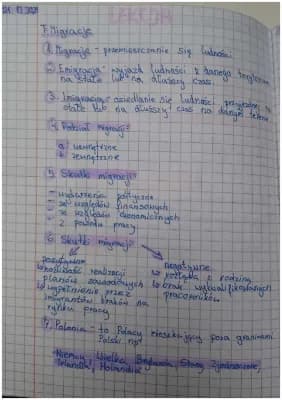 LEKCJA
T: Migracje
1. Migracje - przemieszczanie się ludności
2. Emigracja - wyjazd ludności z danego
na stałe lub na dłuższy czas.
3. Imigracja - osiedlanie się ludności
stałe lub na dłuższy czas na danym terenie
4. Podział migracji:
a. wewnętrzne
b. zewnętrzne
5. Skutki migracji:
- wydarzenia polityczne
- ze względów finansowych
- ze względów ekonomicznych
- z powodu pracy
6. Skutki migracji
pozytywne
możliwość realizacji
planów zawodowych
uzupełnienie przez
imigrantów braków na
rynku pracy
negatywne
rozłąka z rodziną
brak wykwalifikowanych
pracowników
7. Polonia - to Polacy mieszkający poza granicami
Polski np:
Niemcy, Wielka Brytania, Stany Zjednoczone,
Irlandia, Holandia